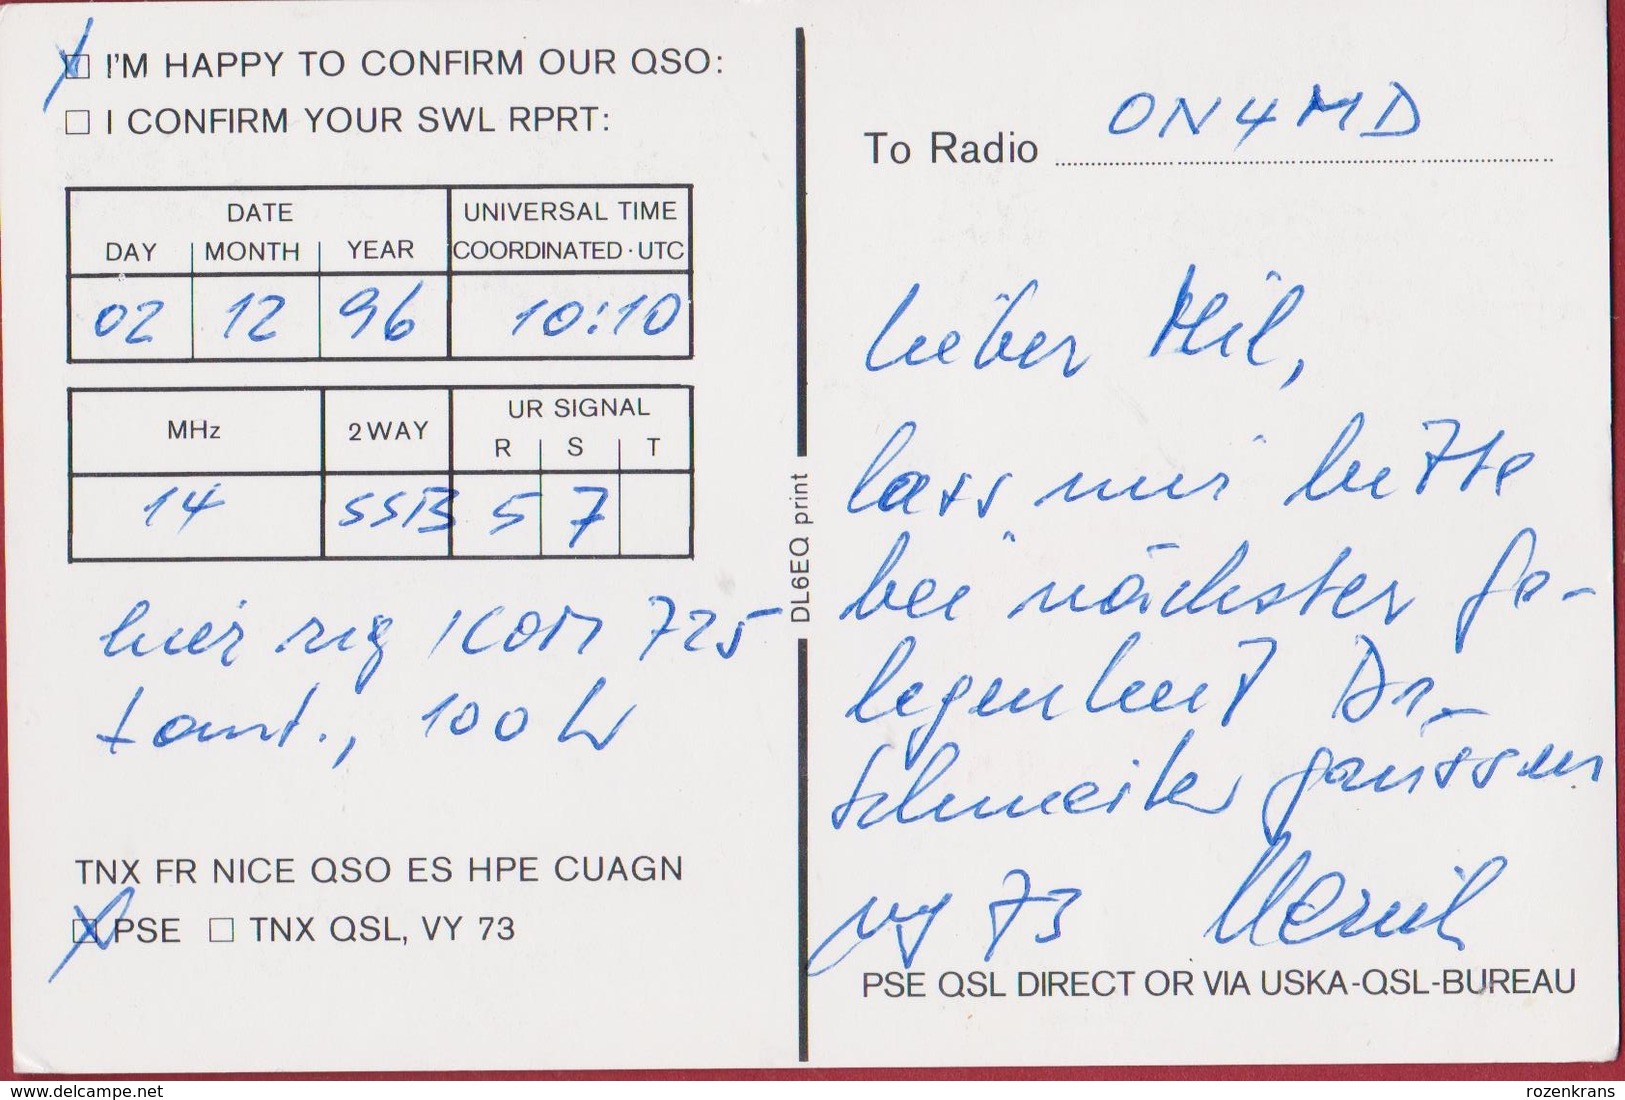 I'M HAPPY TO CONFIRM OUR QSO:
I CONFIRM YOUR SWL RPRT:
DATE
DAY MONTH YEAR
UNIVERSAL TIME
COORDINATED · UTC
02 12 96 10:10
MHz 2WAY UR SIGNAL
R S T
14 SSB 5 7
hier rig ICOM 725
+ ant., 100 W
TNX FR NICE QSO ES HPE CUAGN
PSE TNX QSL, VY 73
DL6EQ print
To Radio ON4MD
lieber Mil,
lass mir bitte
bei nächster Ge-
legenheit Dr.
Schmeiter grüssen
vy 73
PSE QSL DIRECT OR VIA USKA-QSL-BUREAU
delcampe.net
rozenkrans